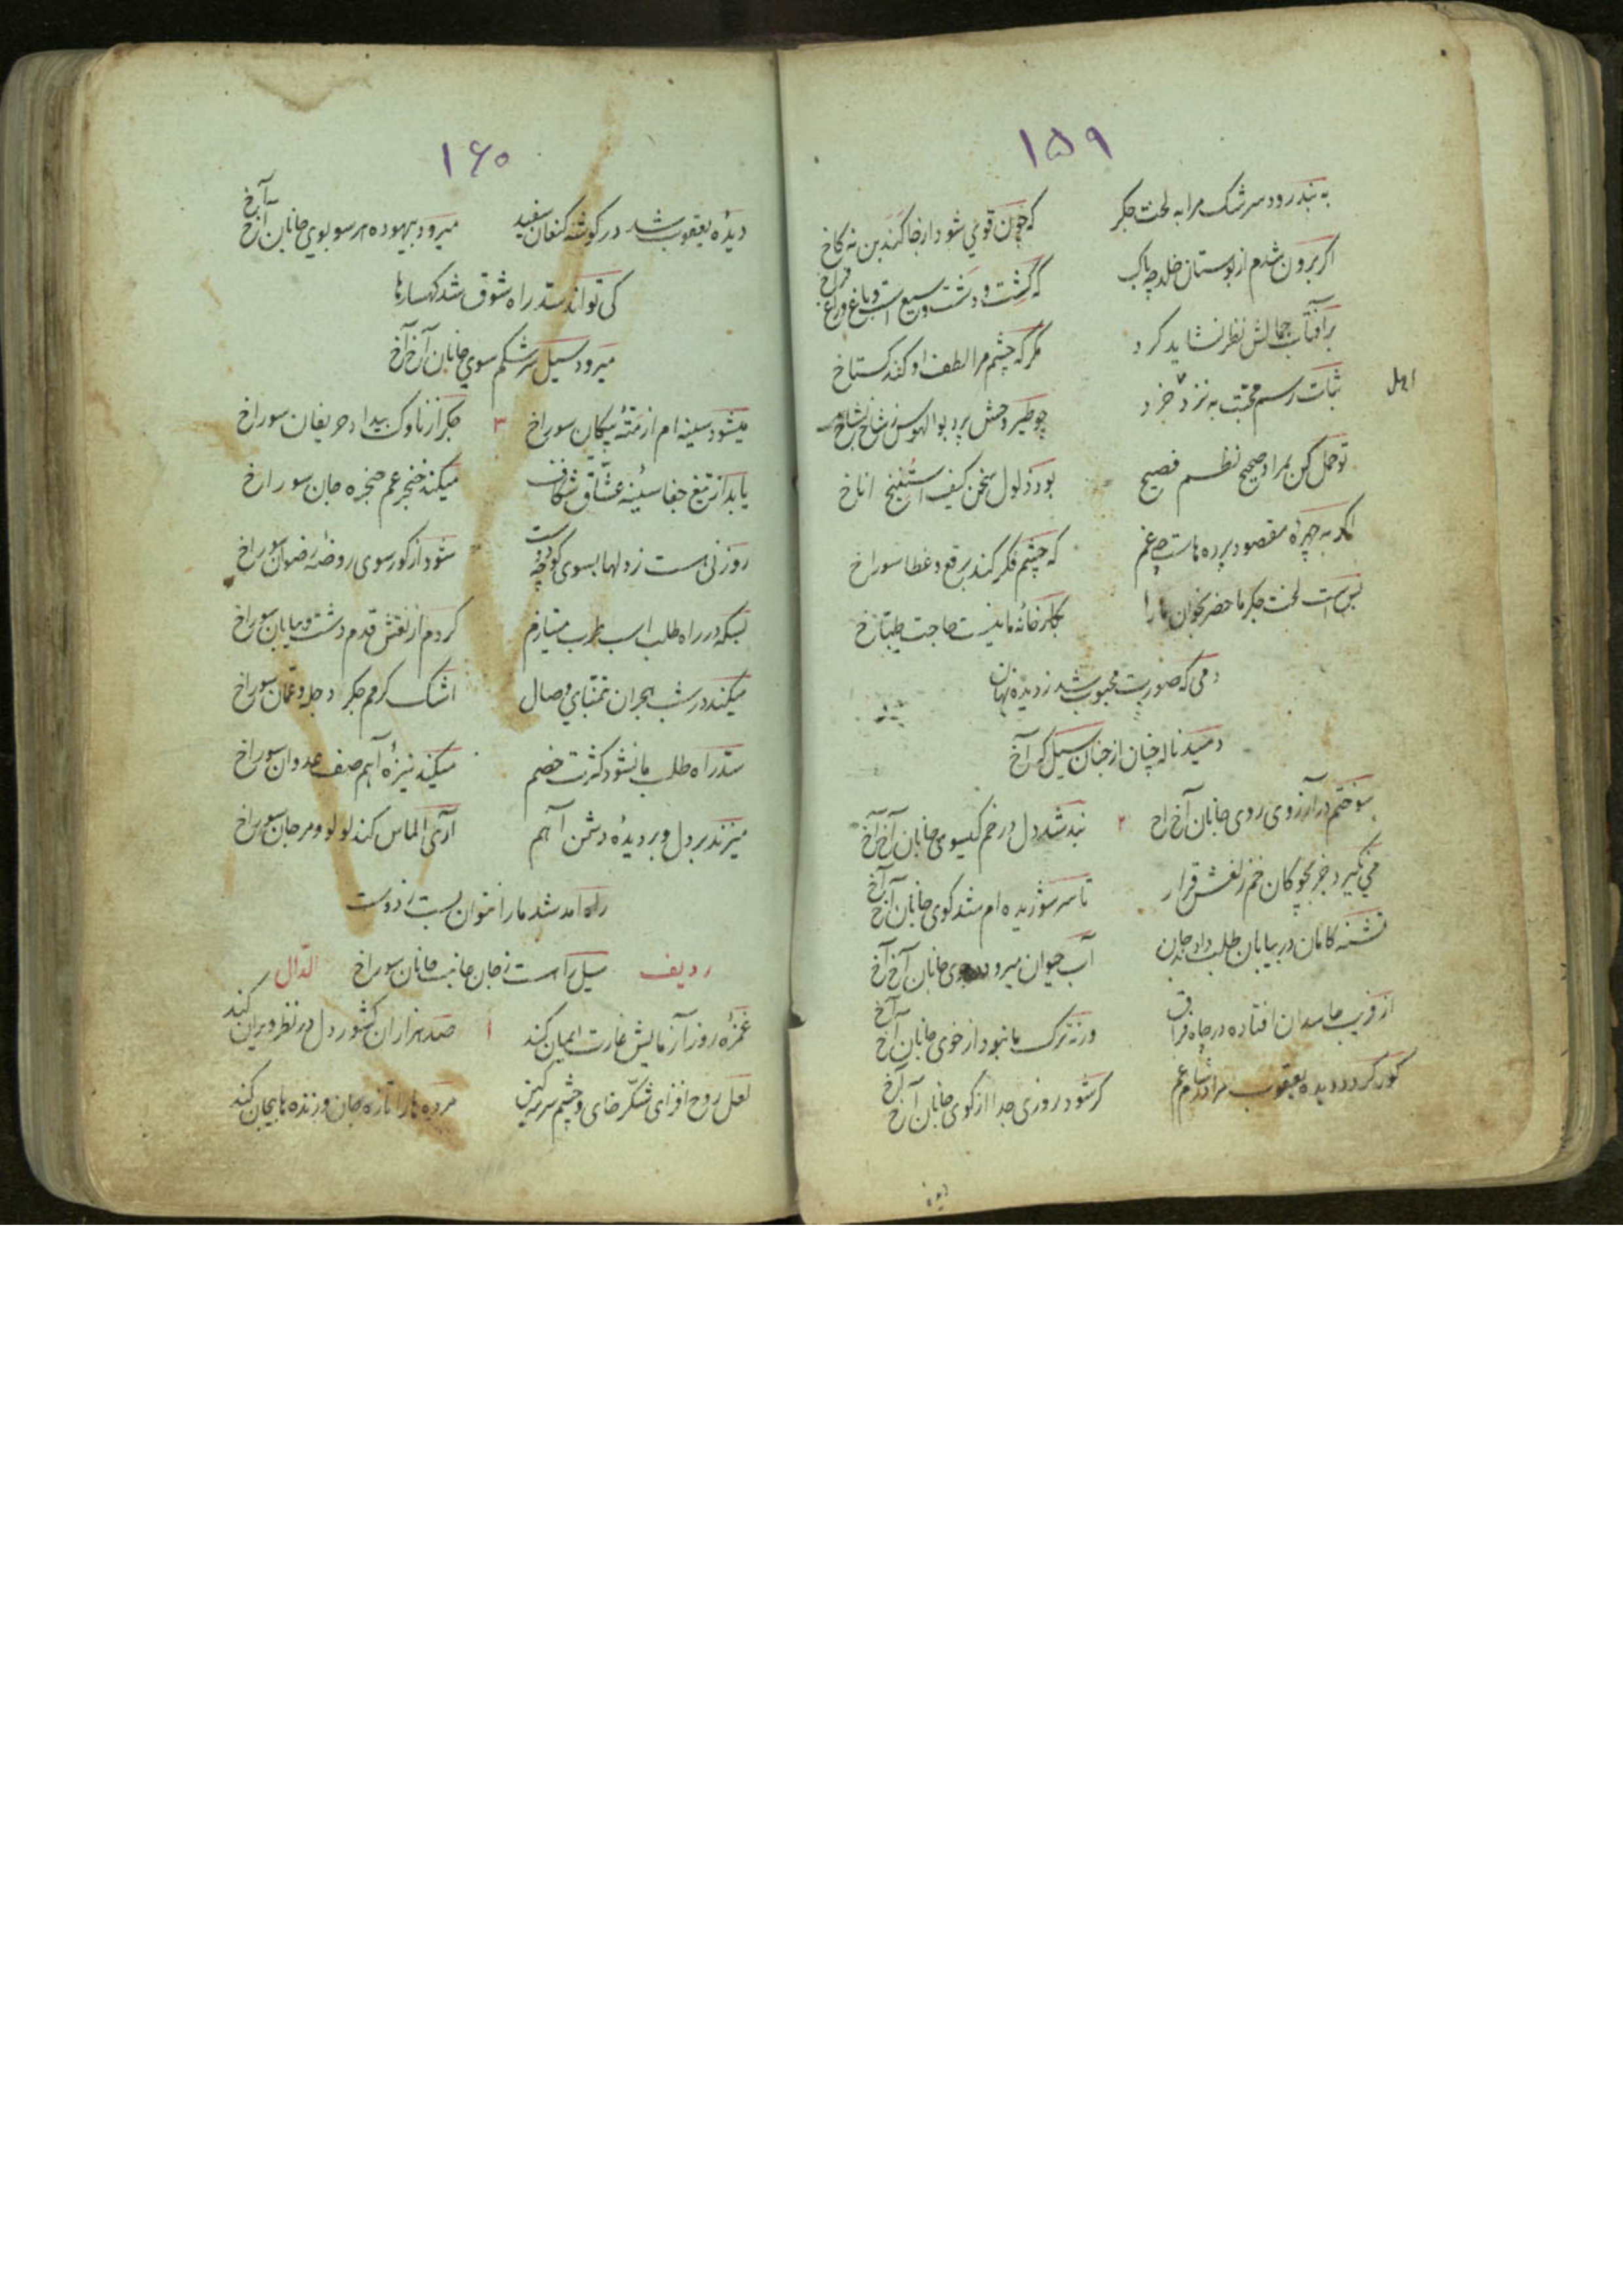 ۱۵۹
به بند رود سرشک مرا به لخت جکر که چون قوي شود ارخا کند بن نه کاخ
اکر برون شدم از بوستان خلد چه باک که کشت و دشت وسیع است و باغ وراغ فراخ
بر آفتاب جمالش نظر نشاید کرد مکر که چشم مرا لطف او کند کستاخ
ثبات رسم محبت به نزد خرد چو طیر وحش پرد بوالهوس ز شاخ بشاخ
اهل
تو حمل کن بمراد صحیح نظم فصیح بود ذلول سخن کیف استنیخ اناخ
اکر به چهره مقصود پرده هاست چه غم که چشم فکر کند برقع و غطا سوراخ
بس است لخت جکر ما حضر بخوان ما را بکارخانه ما نیست حاجت طباخ
دمی که صورت محبوب شد ز دیده نهان
دمید ناله چنان از جنان سیل که آخ
سوختم در آرزوی روی جانان آخ اخ ۲ بند شد دل در خم کیسوی جانان آخ آخ
می نکیرد جز بچوکان خم زلفش قرار تا سر شوریده ام شد کوی جانان آخ آخ
تشنه کامان در بیابان طلب داد جان آب حیوان میرود در جوی جانان آخ آخ
از فریب حاسدان افتاده در چاه فراق ورنه ترک ما نبود از خوی جانان آخ آخ
کور کردد دیده یعقوب مرا در شام غم کر شود روزی جدا از کوی جانان آخ آخ
دیده
۱۶۰
دیدۀ یعقوب شد در کوشه کنعان سفید میرود بیهوده هر سو بوی جانان آخ آخ
کی تواند سد راه شوق شد کهسارها
میرود سیل سرشکم سوی جانان آخ آخ
میشود سینه ام از متۀ پیکان سوراخ ۳ جکر از ناوک بیداد حریفان سوراخ
یابد از تیغ جفا سینه عشاق شکاف میکند خنجر غم حنجره جان سوراخ
روزنی هست ز دلها بسوی کوچه دوست شود از کور سوی روضۀ رضوان سوراخ
بسکه در راه طلب اسب طرب میتازم کردم از نقش قدم دشت و بیابان سوراخ
میکند در شب هجران بتمنای وصال اشک کرمم جکر دجله و عمان سوراخ
سد راه طلب ما نشود کثرت خصم میکند نیزۀ آهم صف عدوان سوراخ
میزند بر دل و بر دیدۀ دشمن آهم آری الماس کند لولو و مرجان سوراخ
راه آمد شد ما را نتوان بست ز دوست
ردیف سیل را هست ز جان جانب جانان سوراخ الدال
غمزۀ روز آزمایش غارت ایمان کند ۱ صد هزاران کشور دل در نظر ویران کند
لعل روح افزای شکر خای و چشم سرمه کین مرده ها را تازه جان و زنده ها بیجان کند